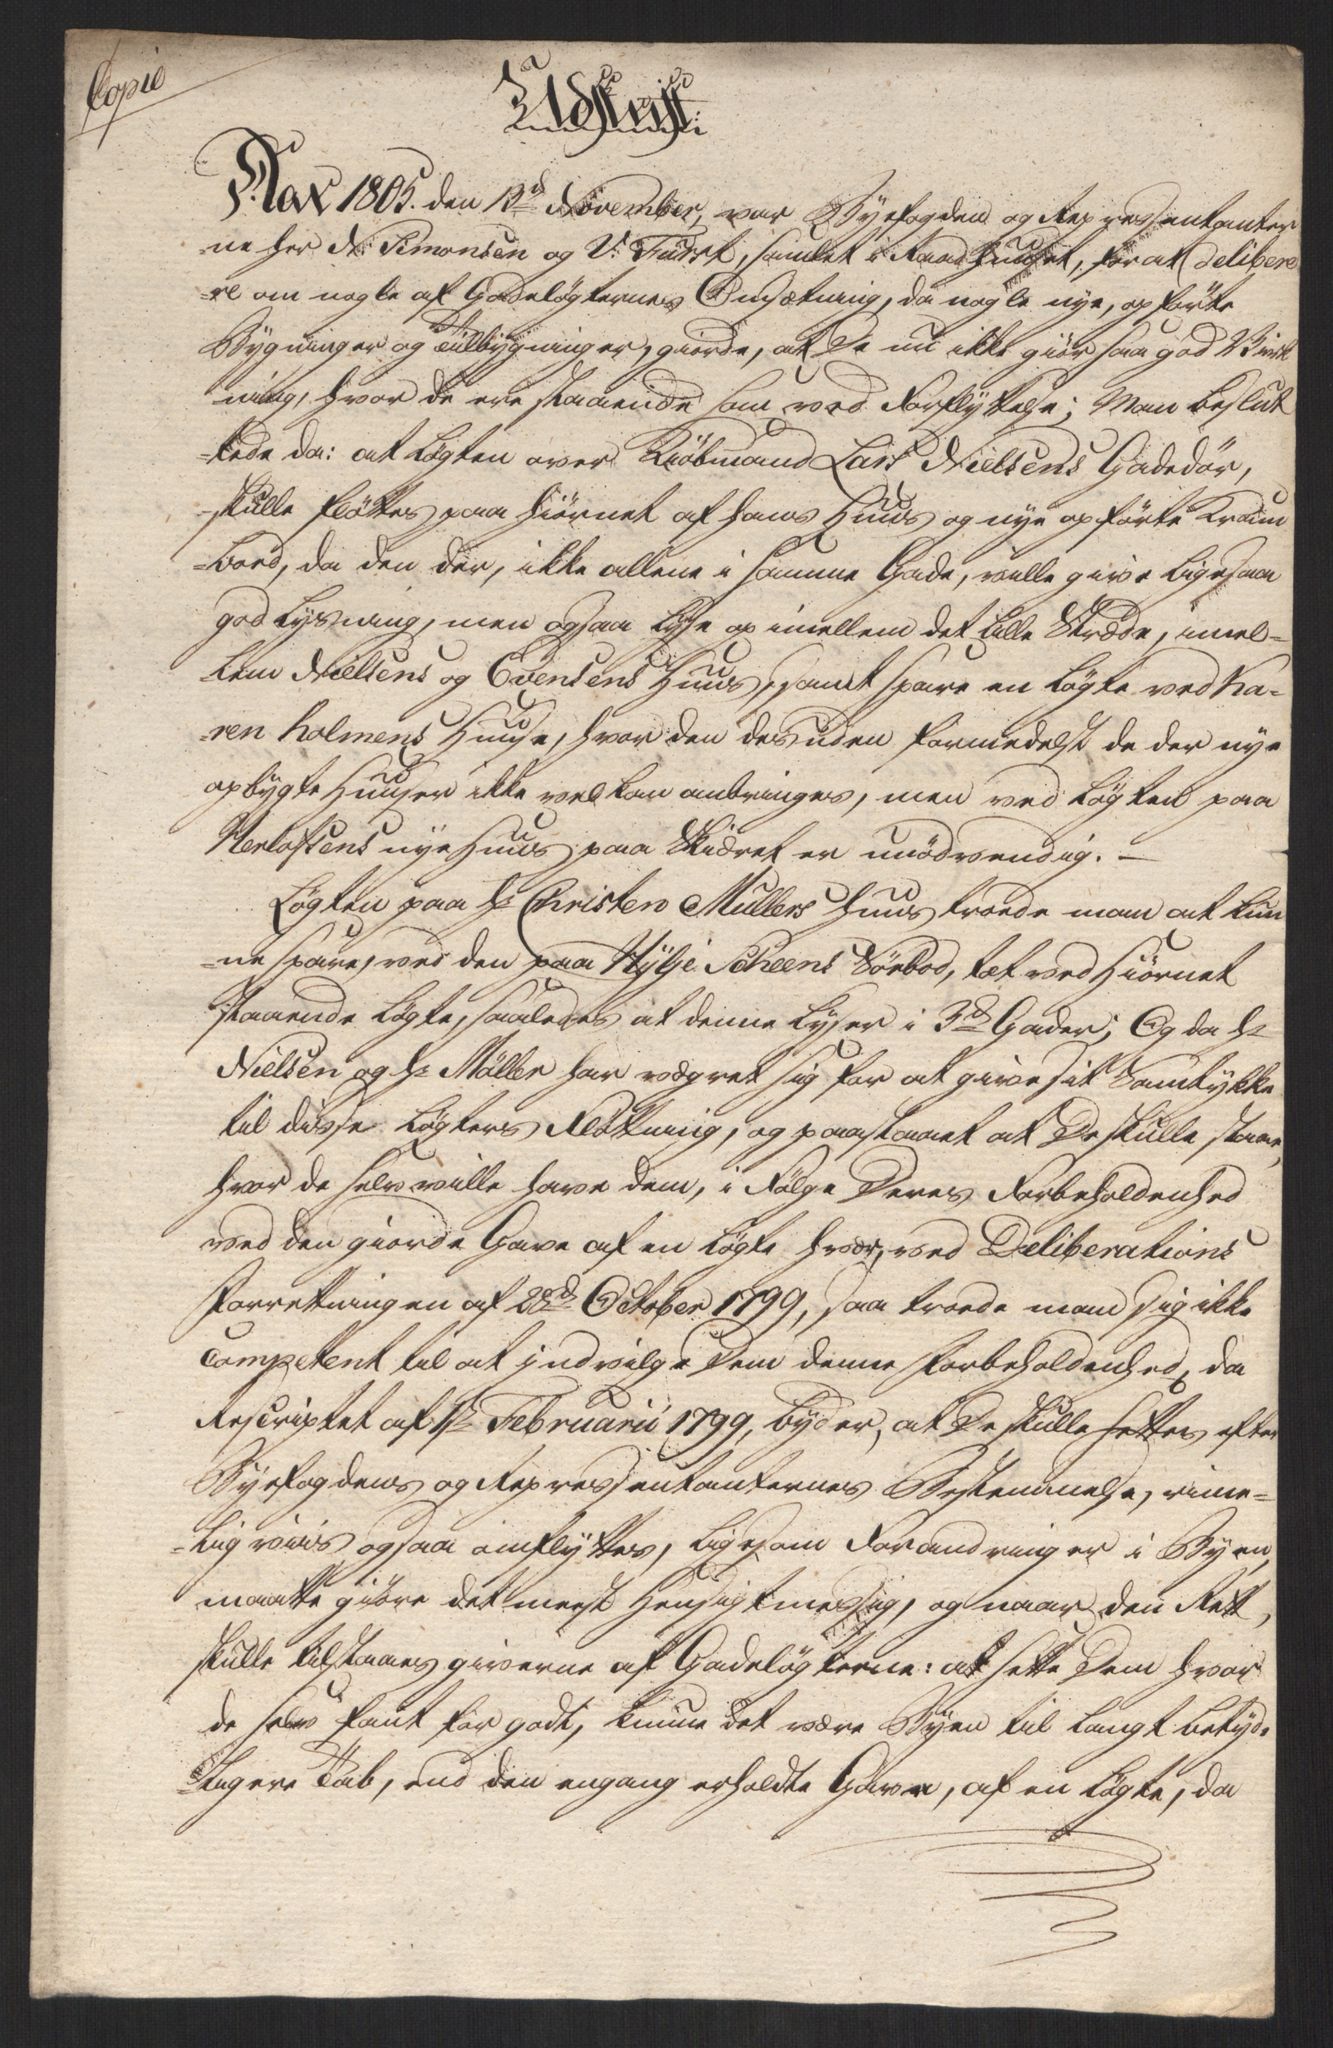 Copie
Udskrift
Aar 1805. den 12d November, var Byefogden og Repressentanter
ne her N: Simonsen og V: Fürst, samlet i Raadhuuset, for at delibere
-re om nogle af Gadeløgternes Omsætning, da nogle nye, opførte
Bygninger og Tilbygninger, giorde, at De nu ikke giør saa god Virk
ning, hvor de ere staaende som ved Forflyttelse; Man beslut
-tede da: at Løgten over Kiøbmand Lars Nielsens Gadedør,
skulle fløttes paa Hiørnet af hans Huus og nye opførte Kram
-boed, da den der, ikke allene i samme Gade, ville give ligesaa
god Lysning, men ogsaa lyse op imellem det lille Stræde, imel-
lem Nielsens og Evensens Huus, samt spare en Løgte ved Ka-
-ren Holmens Huuse, hvor den desuden formedelst de der nye
opbygte Huuser ikke vel kan anbringes, men ved Løgten paa
Herlofsens nye Huus paa Skiæret er unødvendig. —
Løgten paa Hr Christen Mullers Huus troede man at kun
-ne spare, ved den paa Stylje Scheens Søebod, tæt ved Hiørnet
staaende Løgte, saaledes at denne lyser i 3de Gader; Og da Hr
Nielsen og Hr Møller har vægret sig for at give sit Samtykke
til disse Løgters Fløttning, og paastaaet at De skulle staae,
hvor de selv ville have dem, i Følge Deres Forbeholdenhed
ved den giorde Gave af en Løgte hver, ved Deliberations
Forretningen af 28d October 1799, saa troede man sig ikke
competent til at indvilge Dem denne Forbeholdenhed, da
Rescriptet af 1ste Februarii 1799, byder, at De skulle settes efter
Byefogdens og Repressentanternes Bestemmelse, rime-
-lig viis ogsaa omflyttes, ligesom Forandringer i Byen,
maatte giøre det meest Hensigtmessig, og naar den Rett,
skulle tilstaaes giverne af Gadeløgterne: at sette Dem hvor
de selv fant for godt, kunne det være Byen til langt betyde
-ligere Tab, end den engang erholdte Gave, af en Løgte, da